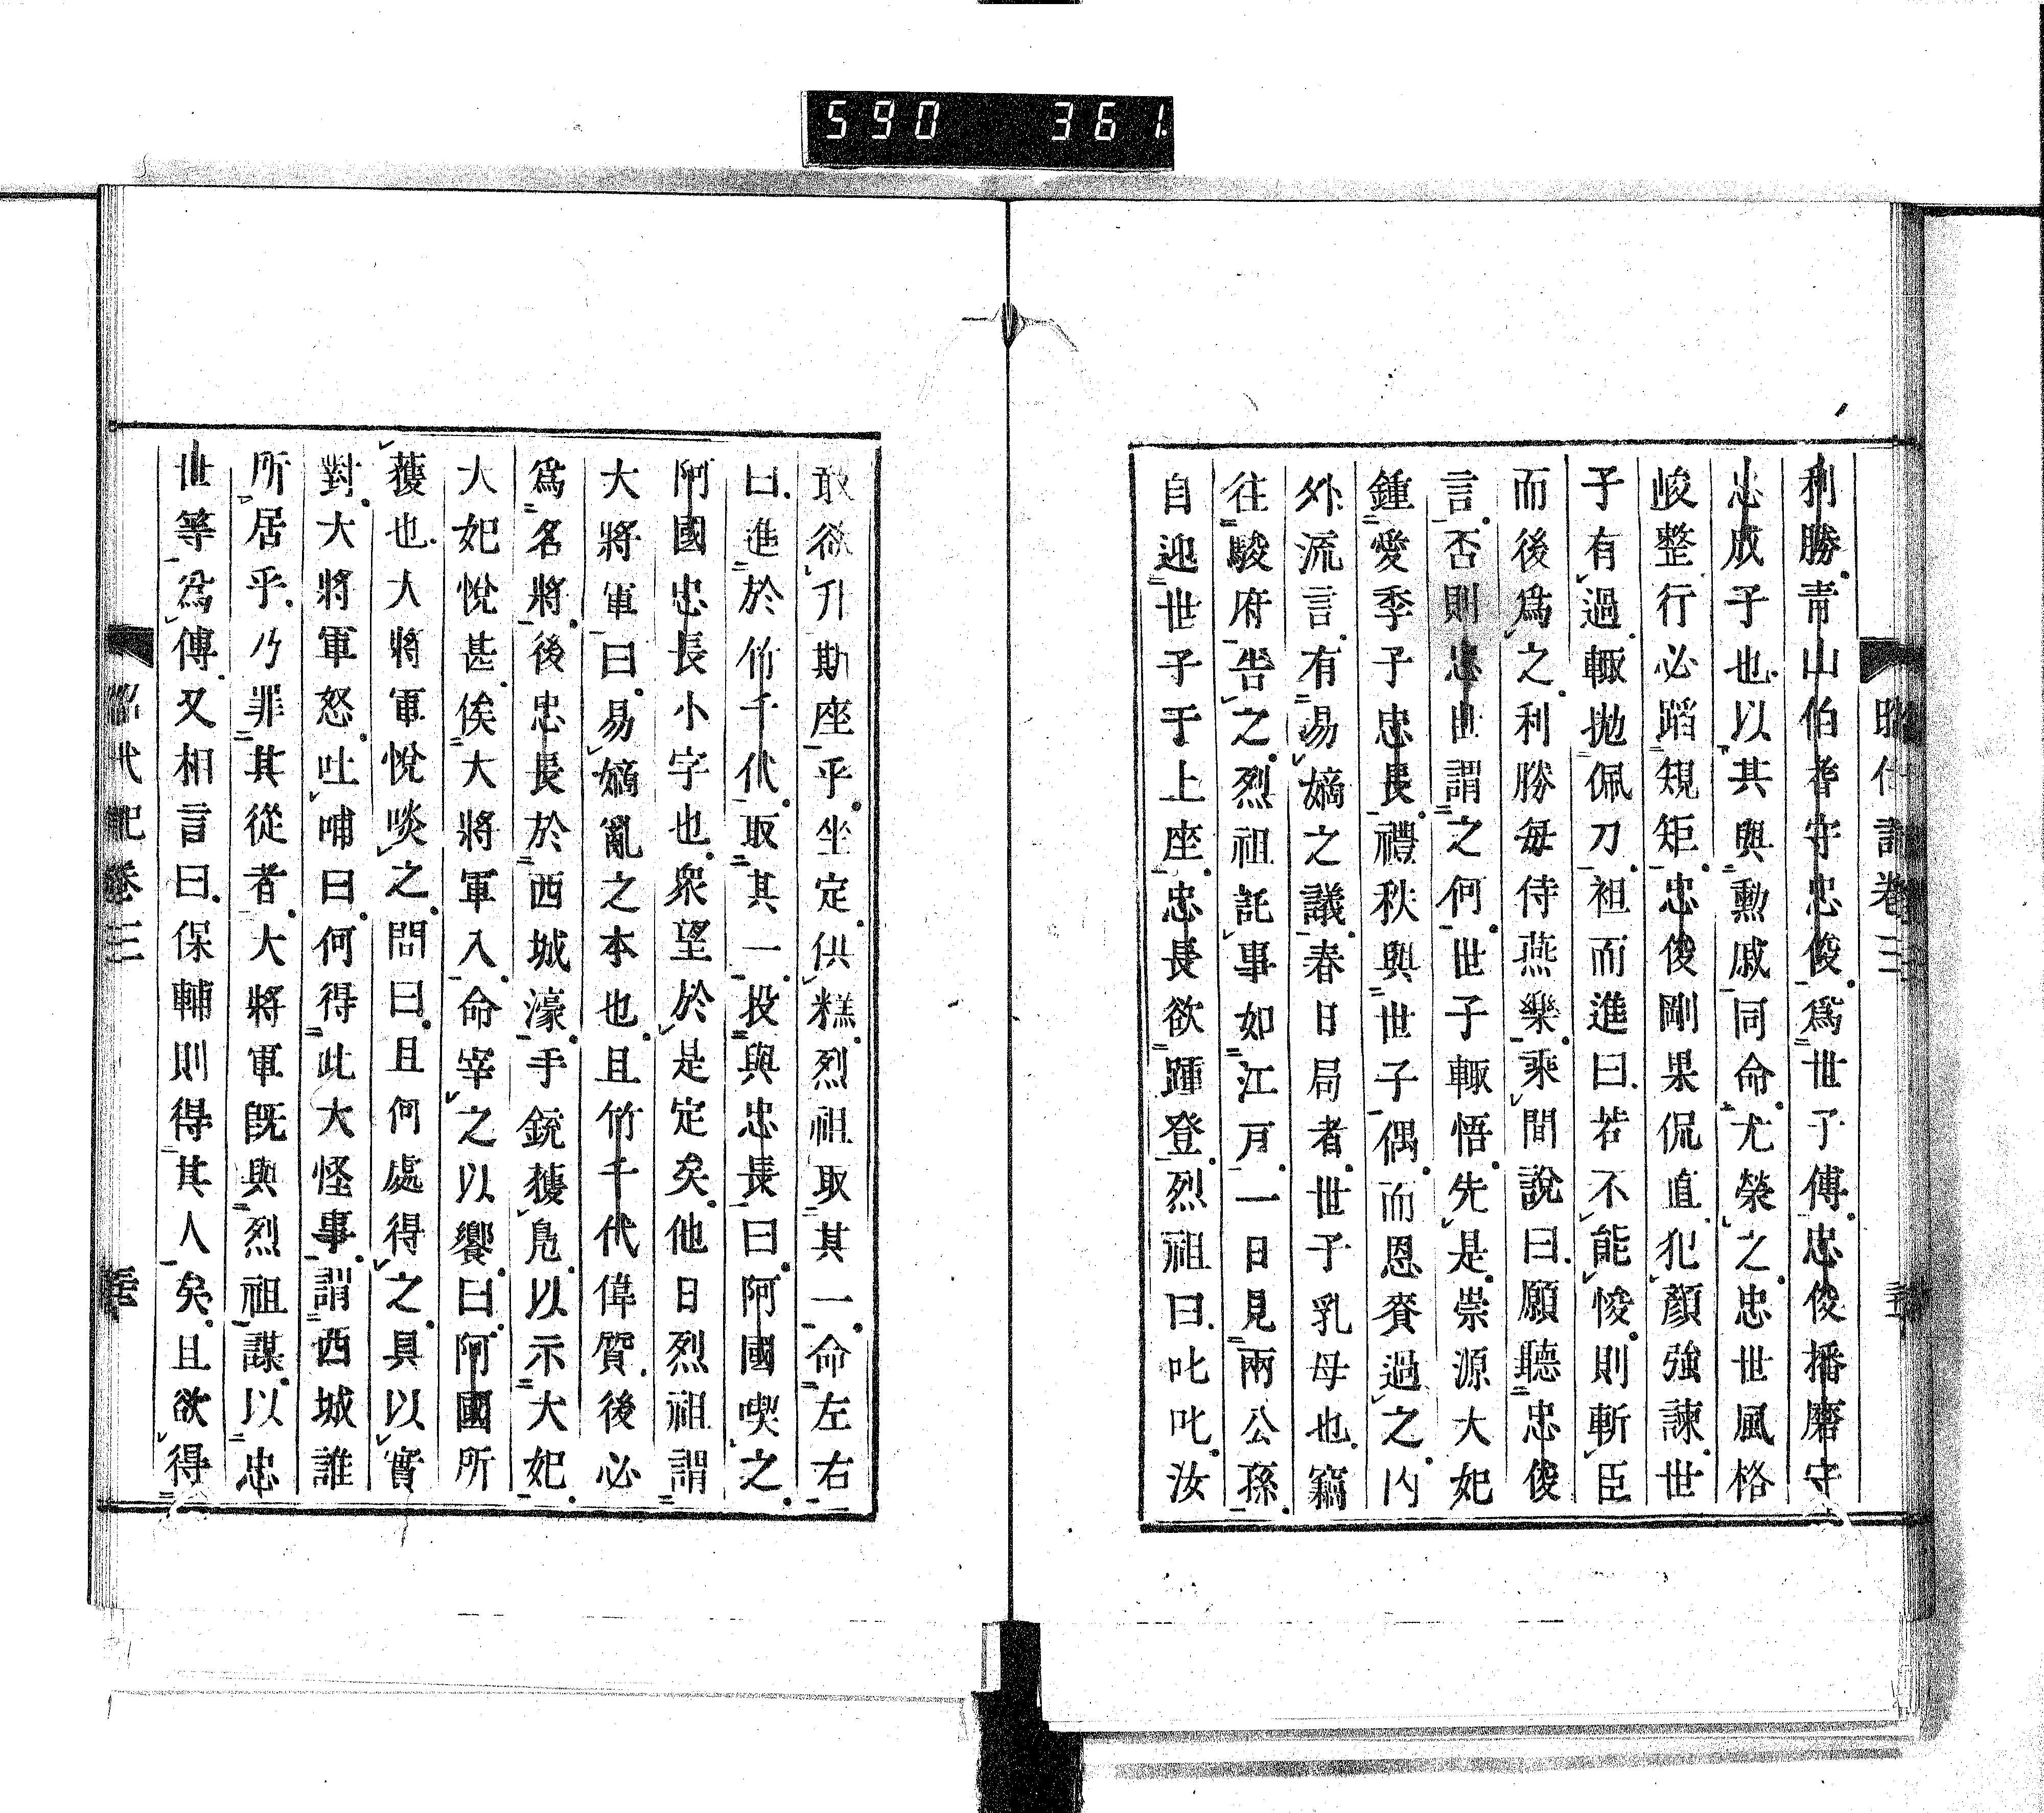 590 361
昭代記卷三
利勝青山伯耆守忠俊爲世子傅忠俊播磨守
忠成子也以其與勲戚同命尤榮之忠世風格
峻整行必蹈規矩忠俊剛果侃直犯顏強諫世
子有過輙拋佩刀袒而進曰若不能悛則斬臣
而後爲之利勝毎侍燕樂乘間說曰願聽忠俊
言否則忠世謂之何世子輙悟先是崇源大妃
鍾愛季子忠長禮秩與世子偶而恩賚過之內
外流言有易嫡之議春日局者世子乳母也竊
往駿府告之烈祖託事如江戸一日見兩公孫
自迎世子于上座忠長欲踵登烈祖曰叱叱汝
敢欲升斯座乎坐定供糕烈祖取其一命左右
曰進於竹千代取其一投與忠長曰阿國喫之
阿國忠長小字也衆望於是定矣他日烈祖謂
大將軍曰易嫡亂之本也且竹千代偉質後必
爲名將後忠長於西城濠手銃獲鳬以示大妃
大妃悅甚俟大將軍入命宰之以饗曰阿國所
獲也大將軍悅啖之問曰且何處得之具以實
對大將軍怒吐哺曰何得此大怪事謂西城誰
所居乎乃罪其從者大將軍既與烈祖謀以忠
世等爲傅又相言曰保輔則得其人矣且欲得
昭代記卷三